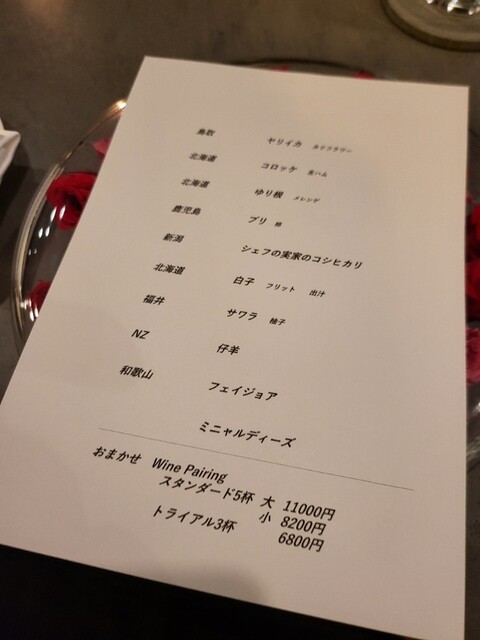 鳥取 ヤリイカ カリフラワー
北海道 コロッケ 生ハム
北海道 ゆり根 メレンゲ
鹿児島 ブリ
新潟 シェフの実家のコシヒカリ
北海道 白子 フリット 出汁
福井 サワラ 柚子
NZ 仔羊
和歌山 フェイジョア
ミニャルディーズ
おまかせ Wine Pairing
スタンダード5杯 大 11000円
小 8200円
トライアル3杯 6800円